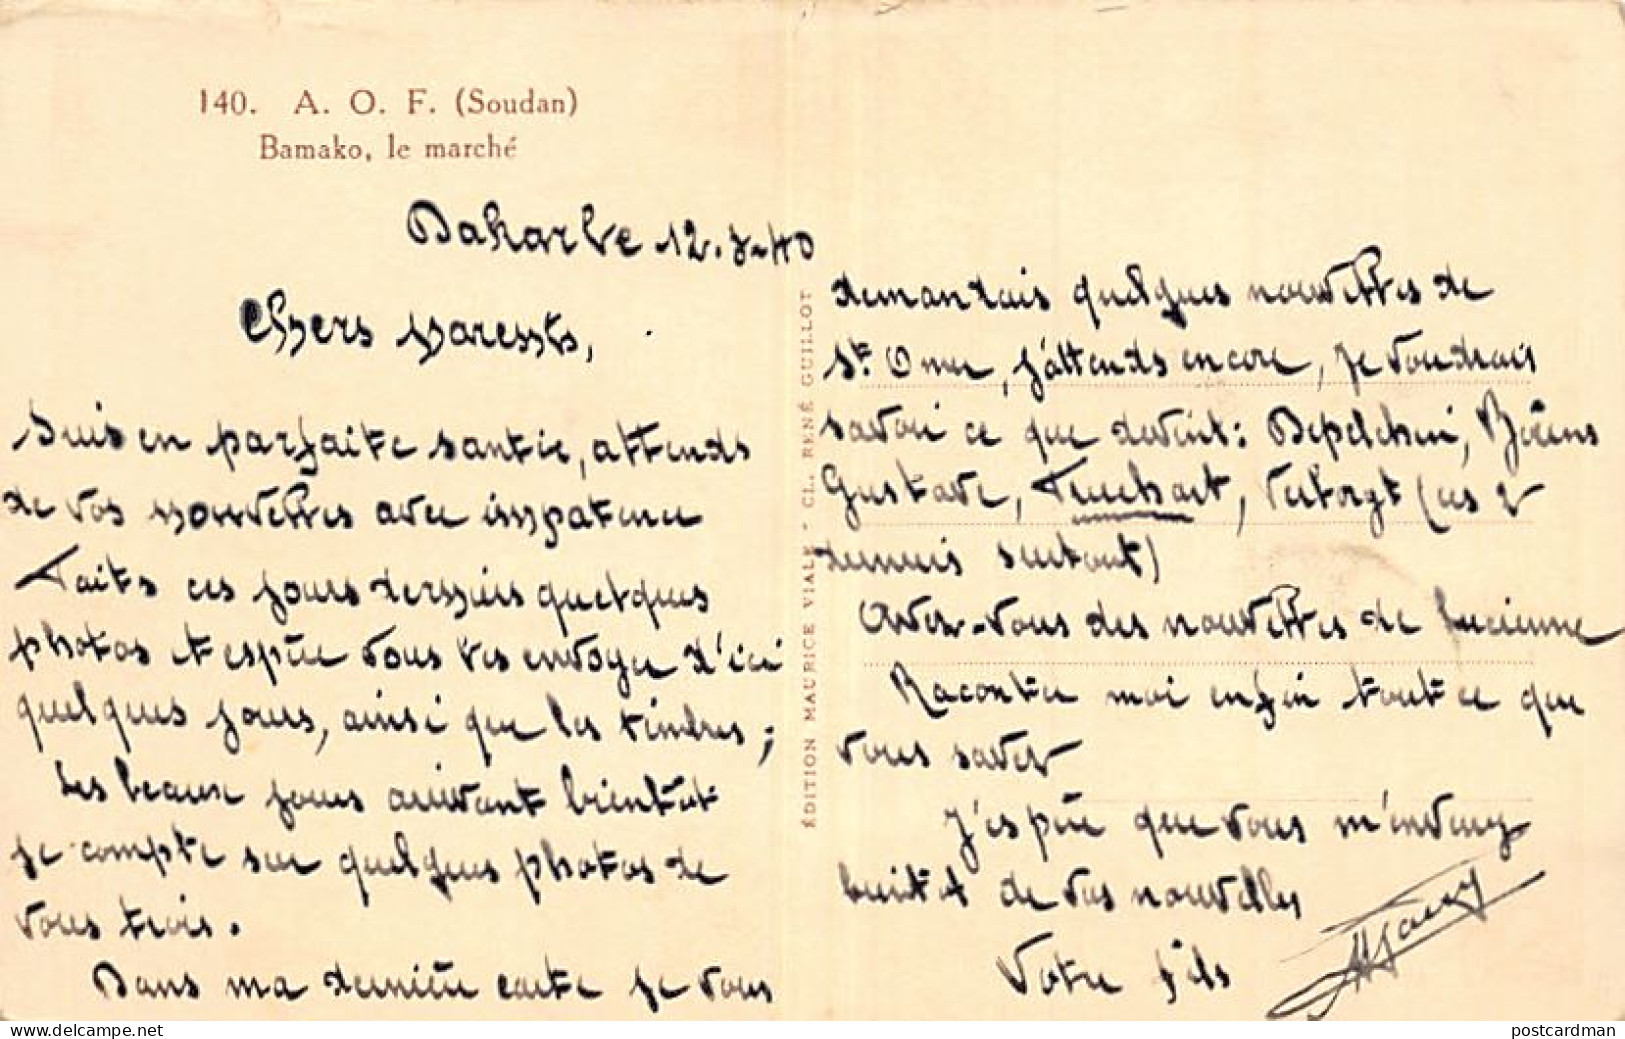 140. A. O. F. (Soudan)
Bamako, le marché
Dakar le 12.3-40
Chers parents,
Suis en parfaite santée, attends
de vos nouvelles avec impatience
Faits ces jours derniers quelques
photos et espère vous les envoyer d'ici
quelques jours, ainsi que les timbres;
Les beaux jours arrivant bientôt
je compte sur quelques photos de
vous trois.
Dans ma dernière carte je vous
demandais quelques nouvelles de
St Omer, j'attends encore, je voudrais
savoir ce que devient: Depelchin,
Gustave, (ces 2
derniers surtout)
Avez-vous des nouvelles de Lucienne
Racontez moi enfin tout ce que
vous savez
J'espère que vous m'enverrez
bientôt de vos nouvelles
Votre fils
ÉDITION MAURICE VIALE - CL. RENÉ GUILLOT
www.delcampe.net
postcardman